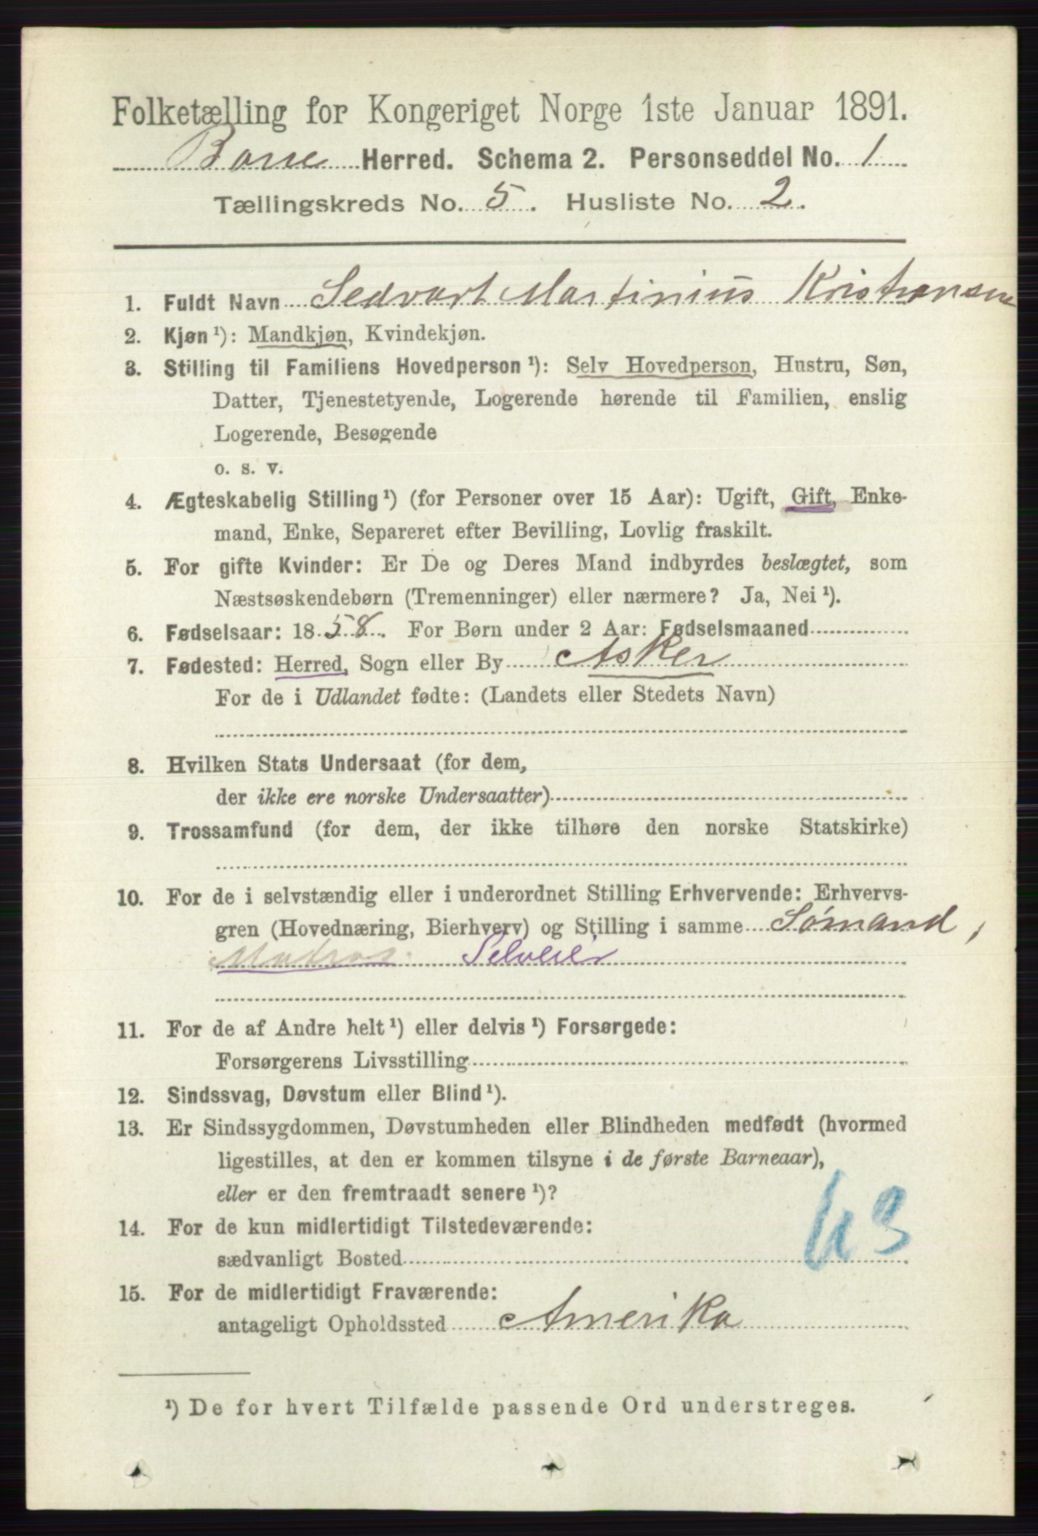 Folketælling for Kongeriget Norge 1ste Januar 1891.
Borre Herred. Schema 2. Personseddel No. 1
Tællingskreds No. 5. Husliste No. 2.
1. Fuldt Navn Sedvart Martinius Kristiansen
2. Kjøn ¹): Mandkjøn, Kvindekjøn.
3. Stilling til Familiens Hovedperson ¹): Selv Hovedperson, Hustru, Søn,
Datter, Tjenestetyende, Logerende hørende til Familien, enslig
Logerende, Besøgende
o. s. v.
4. Ægteskabelig Stilling ¹) (for Personer over 15 Aar): Ugift, Gift, Enke-
mand, Enke, Separeret efter Bevilling, Lovlig fraskilt.
5. For gifte Kvinder: Er De og Deres Mand indbyrdes beslægtet, som
Næstsøskendebørn (Tremenninger) eller nærmere? Ja, Nei ¹).
6. Fødselsaar: 1858. For Børn under 2 Aar: Fødselsmaaned
7. Fødested: Herred, Sogn eller By Asker
For de i Udlandet fødte: (Landets eller Stedets Navn)
8. Hvilken Stats Undersaat (for dem,
der ikke ere norske Undersaatter)
9. Trossamfund (for dem, der ikke tilhøre den norske Statskirke)
10. For de i selvstændig eller i underordnet Stilling Erhvervende: Erhvervs-
gren (Hovednæring, Bierhverv) og Stilling i samme Sømand,
Matros. Selveier
11. For de af Andre helt ¹) eller delvis ¹) Forsørgede:
Forsørgerens Livsstilling
12. Sindssvag, Døvstum eller Blind ¹).
13. Er Sindssygdommen, Døvstumheden eller Blindheden medfødt (hvormed
ligestilles, at den er kommen tilsyne i de første Barneaar),
eller er den fremtraadt senere ¹)?
14. For de kun midlertidigt Tilstedeværende:
sædvanligt Bosted
63
15. For de midlertidigt Fraværende:
antageligt Opholdssted Amerika
¹) De for hvert Tilfælde passende Ord understreges.